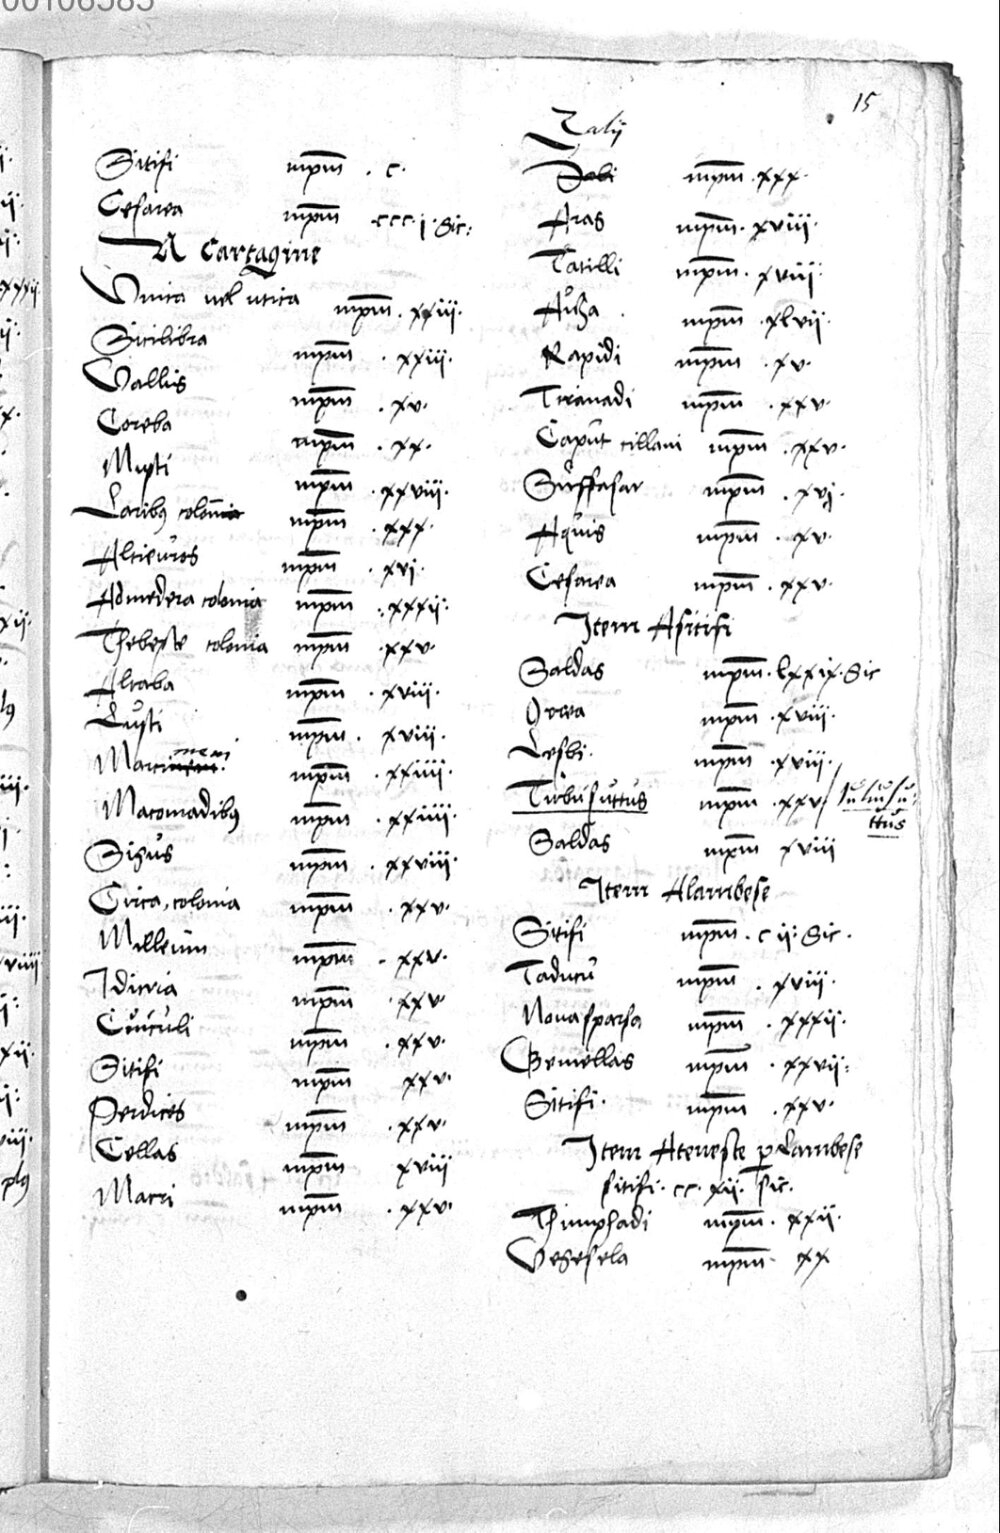 00106585
15
Sitifi mpm . c .
Cesarea mpm . ccc . i . sic :
A Cartagine
Vnica uel utica mpm . xxiii .
Sicilibra mpm . xxiiii .
Vallis mpm . xv .
Coreba mpm . xx .
Musti mpm . xxviii .
Laribus colonia mpm . xxx .
Altieuros mpm . xvi .
Admedera colonia mpm . xxxii .
Thebeste colonia mpm . xxv .
Altaba mpm . xviii .
Lusti mpm . xviii .
Marcimeni mpm . xxiiii .
Macomadibus mpm . xxiiii .
Sigus mpm . xxviii .
Circa , colonia mpm . xxv .
Milleum mpm . xxv .
Idicria mpm . xxv
Cuiculi mpm . xxv .
Sitifi mpm xxv .
Perdices mpm . xxv .
Cellas mpm xviii
Macri mpm . xxv .
Zalij
mpm . xxx .
Aras mpm . xviii .
Tatilli mpm . xviii .
Auza mpm . xlvii .
Rapidi mpm . xv .
Tiranadi mpm . xxv .
Caput cillani mpm . xxv .
Suffasar mpm . xvj .
Aquis mpm . xv .
Cesarea mpm . xxv .
Item Asitifi
Saldas mpm . lxxix . sic
Orea mpm . xviii .
Lesbi . mpm . xviii .
Tubusuttus mpm . xxv /
ttus
Saldas mpm xviii
Item Alambese
Sitifi mpm . c ii : sic .
Taducu mpm . xviii .
Noua sparsa mpm . xxxii .
Gemellas mpm . xxvii :
Sitifi . mpm . xxv .
Item Ateueste p lambese
sitifi . cc . xii . sic .
Thimphadi mpm . xxii .
Vegesela mpm . xx